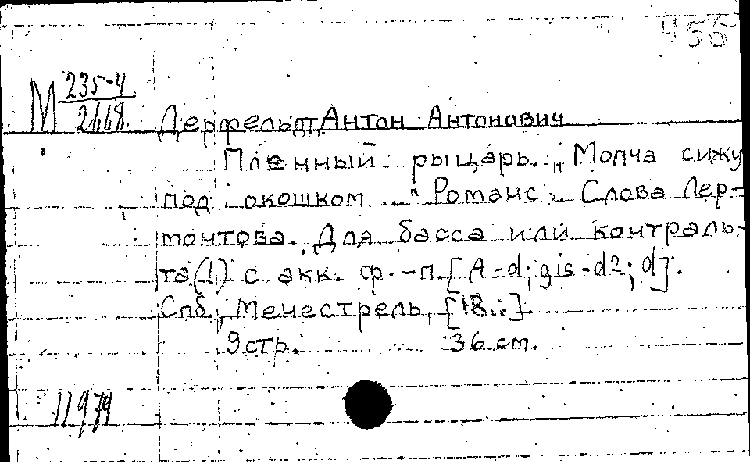 455
М 235-4
2668
Дерфельдт Антон Антонович
Пленный рыцарь. „Молча сижу
под окошком ..." Романс. Слова Лер-
монтова. Для басса или контраль-
та (!) с акк. ф.-п. [A-d; gis-d2; d].
Спб, Менестрель, [18..]
9 стр. 36 см.